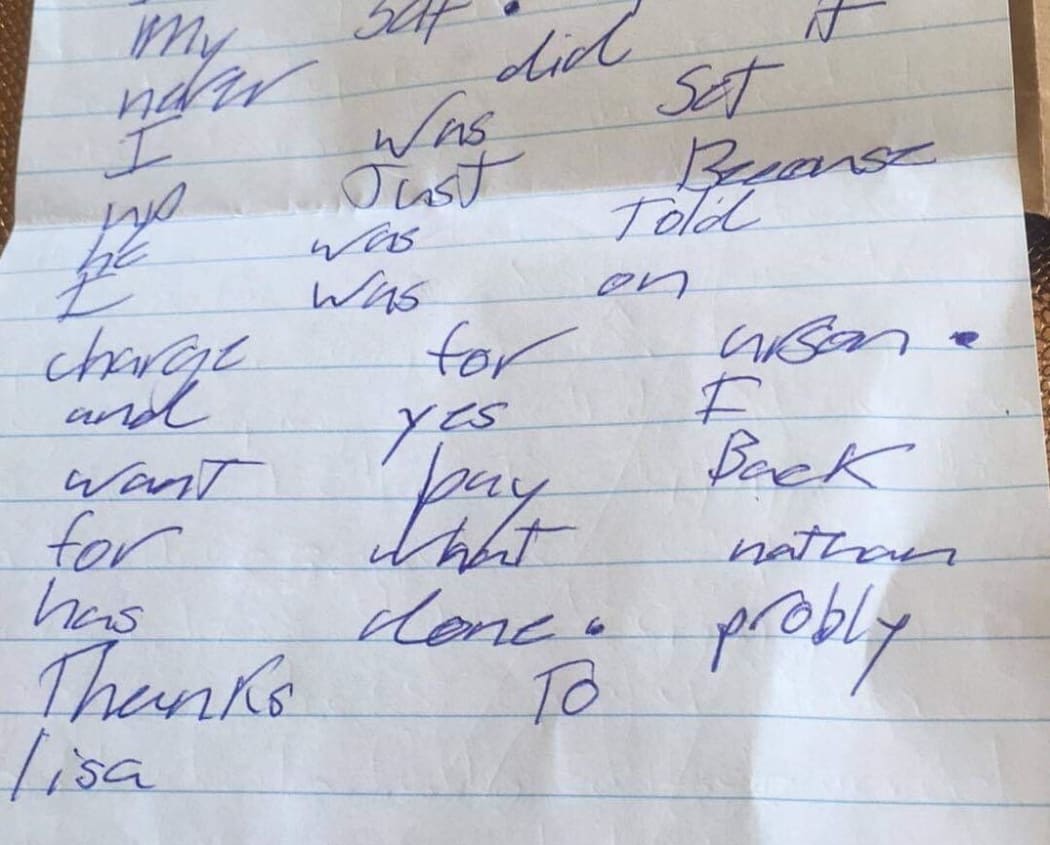 My self. it
never did
I was set
up Just Because
he was Told
I was on
charge for arson.
and yes I
want pay Back
for what nathan
has done. probly
Thanks To
lisa